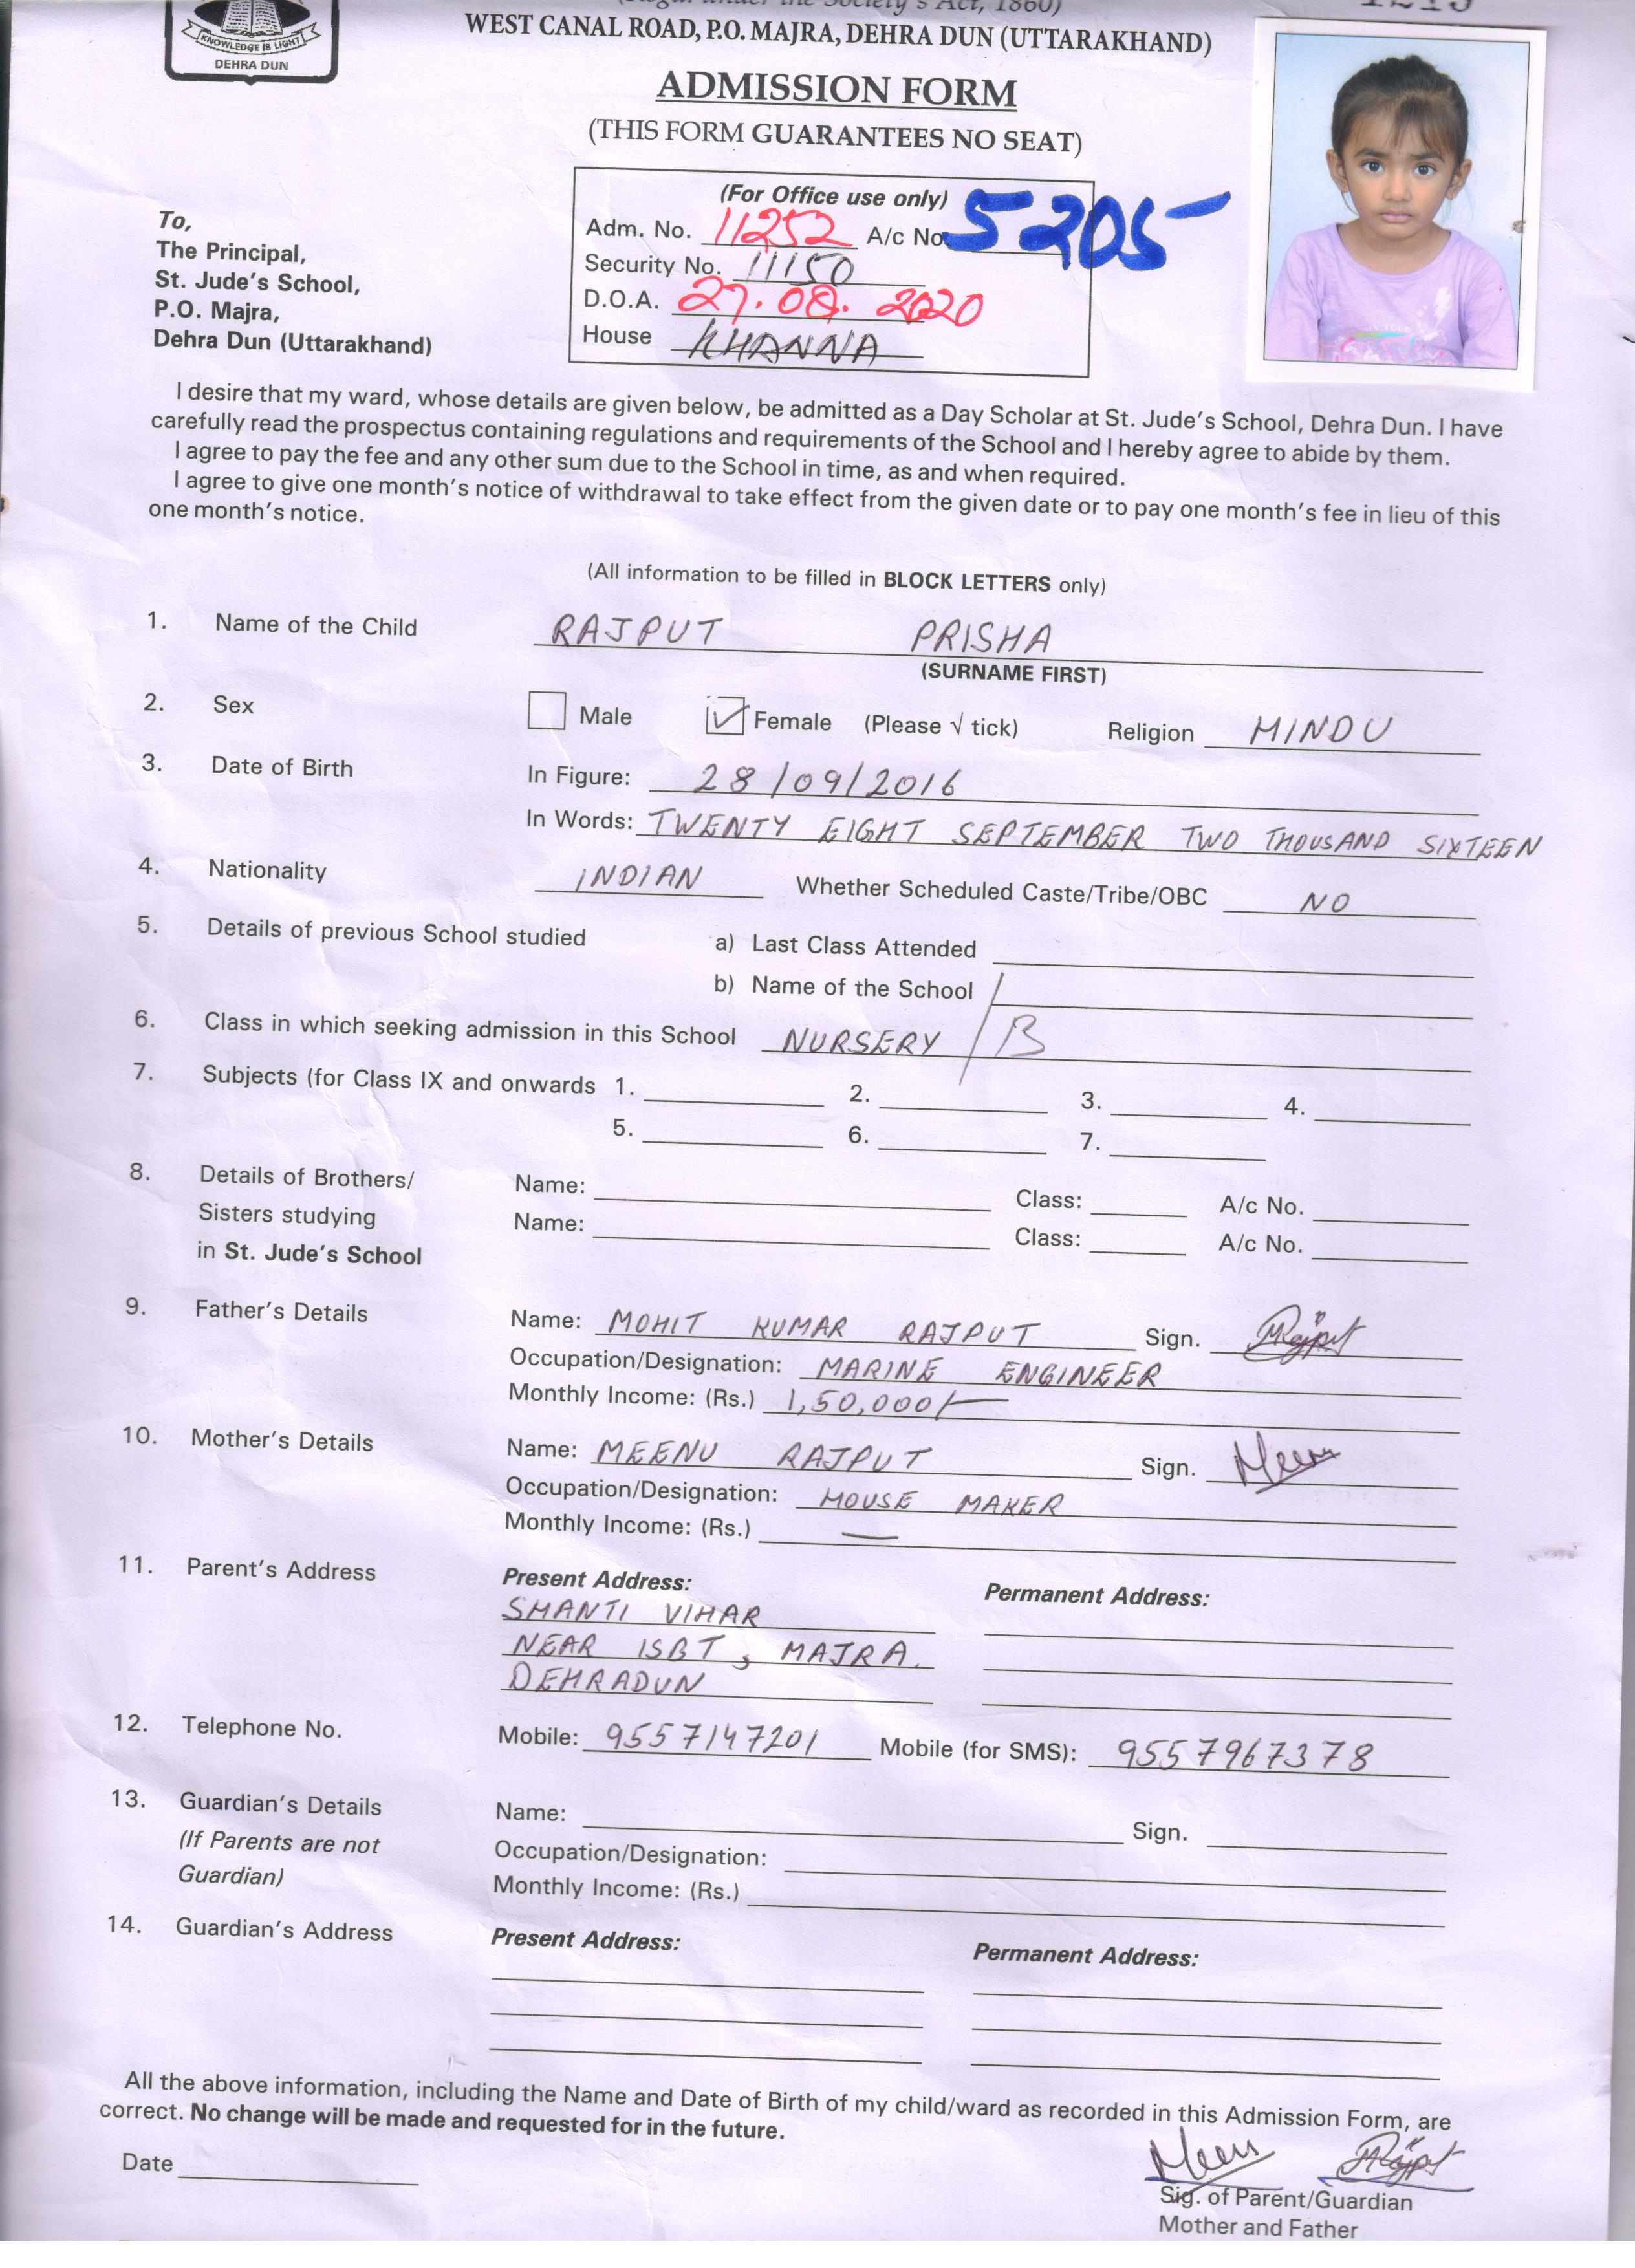 (Regd. under the Society's Act, 1860)
WEST CANAL ROAD, P.O. MAJRA, DEHRA DUN (UTTARAKHAND)
KNOWLEDGE IS LIGHT
DEHRA DUN
ADMISSION FORM
(THIS FORM GUARANTEES NO SEAT)
(For Office use only)
Adm. No. 11252 A/c No. 5205
Security No. 11150
D.O.A. 27.08.2020
House KHANNA
To,
The Principal,
St. Jude's School,
P.O. Majra,
Dehra Dun (Uttarakhand)
I desire that my ward, whose details are given below, be admitted as a Day Scholar at St. Jude's School, Dehra Dun. I have
carefully read the prospectus containing regulations and requirements of the School and I hereby agree to abide by them.
I agree to pay the fee and any other sum due to the School in time, as and when required.
I agree to give one month's notice of withdrawal to take effect from the given date or to pay one month's fee in lieu of this
one month's notice.
(All information to be filled in BLOCK LETTERS only)
1. Name of the Child RAJPUT PRISHA
(SURNAME FIRST)
2. Sex Male Female (Please √ tick) Religion HINDU
3. Date of Birth In Figure: 28/09/2016
In Words: TWENTY EIGHT SEPTEMBER TWO THOUSAND SIXTEEN
4. Nationality INDIAN Whether Scheduled Caste/Tribe/OBC NO
5. Details of previous School studied a) Last Class Attended
b) Name of the School
6. Class in which seeking admission in this School NURSERY / B
7. Subjects (for Class IX and onwards 1. 2. 3. 4.
5. 6. 7.
8. Details of Brothers/ Name: Class: A/c No.
Sisters studying Name: Class: A/c No.
in St. Jude's School
9. Father's Details Name: MOHIT KUMAR RAJPUT Sign. MRajput
Occupation/Designation: MARINE ENGINEER
Monthly Income: (Rs.) 1,50,000/-
10. Mother's Details Name: MEENU RAJPUT Sign. Meenu
Occupation/Designation: HOUSE MAKER
Monthly Income: (Rs.) —
11. Parent's Address Present Address: Permanent Address:
SHANTI VIHAR
NEAR ISBT, MAJRA.
DEHRADUN
12. Telephone No. Mobile: 9557147201 Mobile (for SMS): 9557967378
13. Guardian's Details Name: Sign.
(If Parents are not Occupation/Designation:
Guardian) Monthly Income: (Rs.)
14. Guardian's Address Present Address: Permanent Address:
All the above information, including the Name and Date of Birth of my child/ward as recorded in this Admission Form, are
correct. No change will be made and requested for in the future.
Date
Meenu MRajput
Sig. of Parent/Guardian
Mother and Father